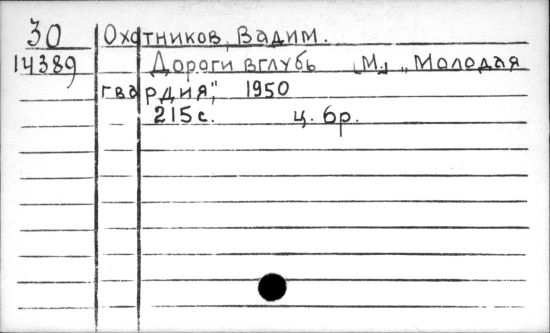 30 Охотников, Вадим.
14389 Дороги вглубь [М.] „Молодая
гвардия", 1950
215 с. ц. 6р.